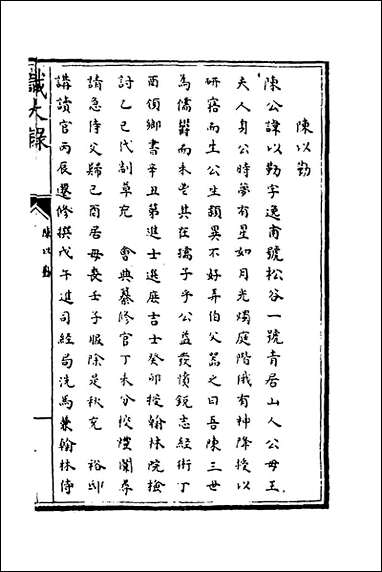 陳以勤
陳公諱以勤字逸甫號松谷一號青居山人公母王
夫人身公時夢有星如月光燭庭階俄有神降授以
研寤而生公生頴異不好弄伯父器之曰吾陳三世
為儒欝而未豊其在孺子乎公益發憤銳志經術丁
酉領鄉書辛丑第進士選庶吉士癸卯授翰林院檢
討乙巳代制草充　會典纂修官丁未分校禮闈尋
請急侍父歸己酉居母喪壬子服除是秋充　裕邸
講讀官丙辰遷修撰戊午進司經局洗馬兼翰林侍
識大錄
陳以勤